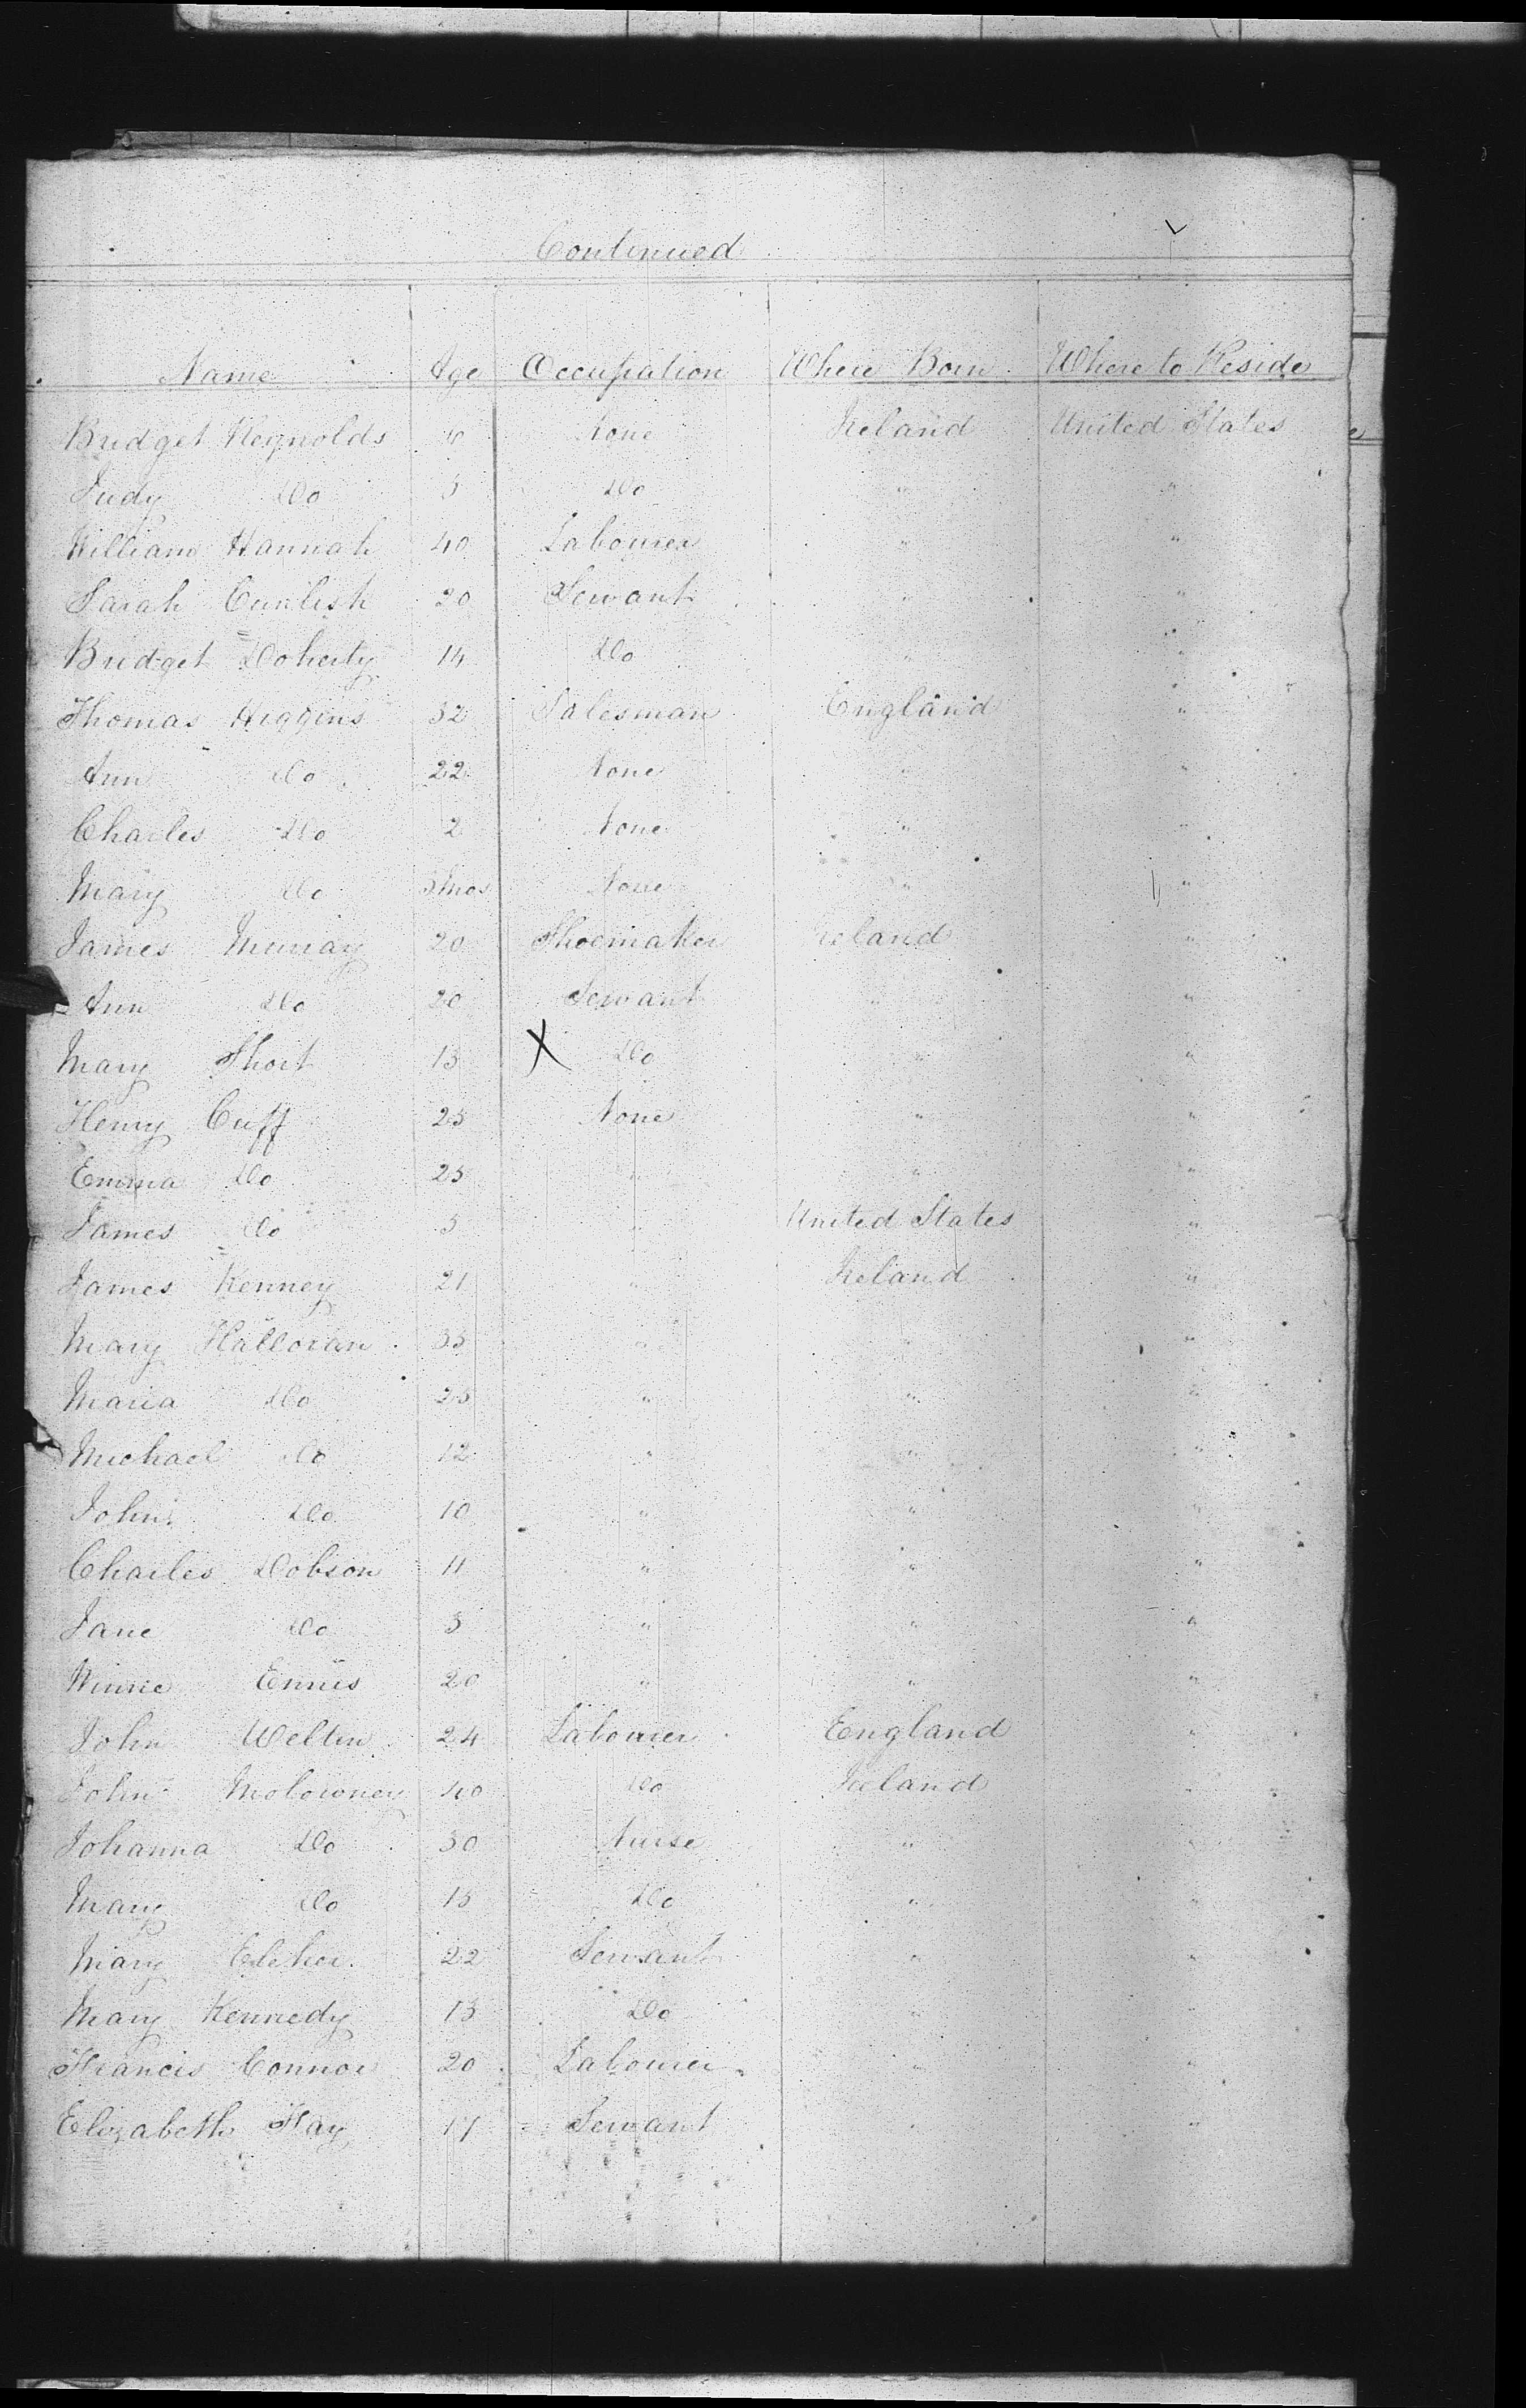 Continued
Name Age Occupation Where Born Where to Reside
Bridget Reynolds None Ireland United States
Judy Do Do " "
William Hannah 40 Labourer " "
Sarah 20 Servant " "
Bridget Doherty 14 Do " "
Thomas Higgins 32 Salesman England "
Ann Do 22 None " "
Charles Do 2 None " "
Mary Do mos None " "
James Murray 20 Shoemaker Ireland "
Ann Do 20 Servant " "
Mary Short 13 X Do " "
Henry Cuff 25 None " "
Emma Do 25 " " "
James Do 3 " United States "
James Kenney 21 " Ireland "
Mary Halloran 35 " " "
Maria Do 25 " " "
Michael Do 12 " " "
John Do 10 " " "
Charles Dobson 11 " " "
Jane Do 3 " " "
Winnie Ennis 20 " " "
John Weltin 24 Labourer England "
John Molowney 40 Do Ireland "
Johanna Do 30 Nurse " "
Mary Do 13 Do " "
Mary 22 Servant " "
Mary Kennedy 13 Do " "
Francis Connor 20 Labourer " "
Elizabeth Hay 17 Servant " "